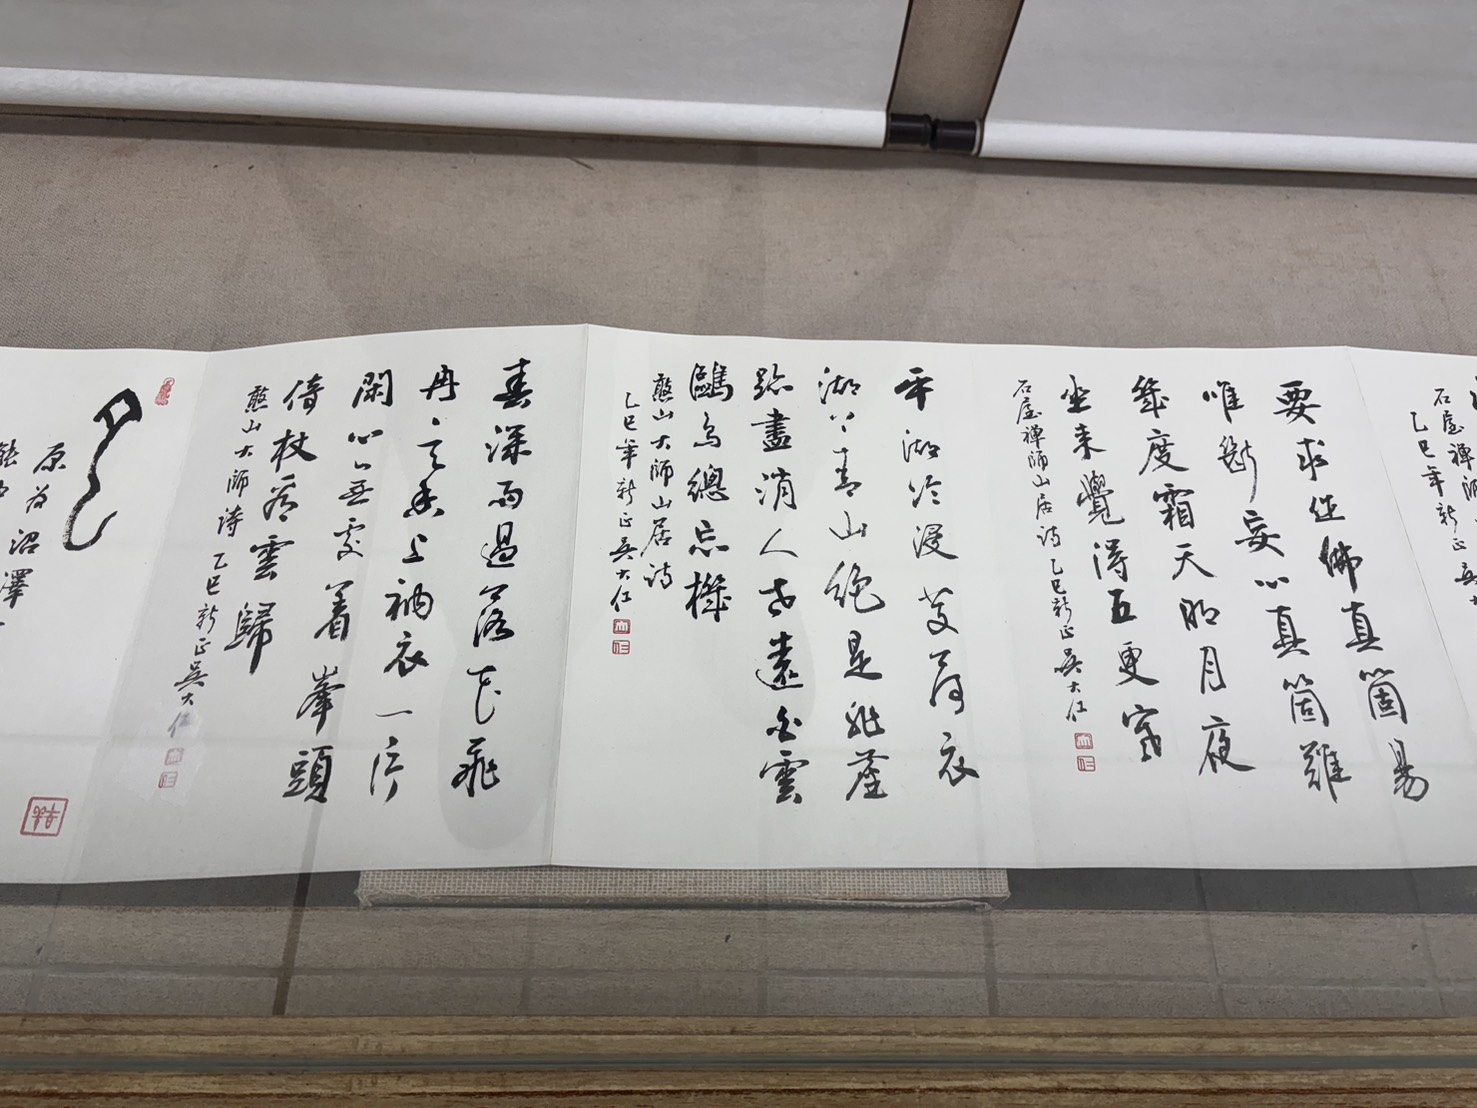 石屋禪師
乙巳年新正吳大
要求作佛真箇易
唯斷妄心真箇難
幾度霜天明月夜
坐来覺得五更寒
石屋禅师山居诗 乙巳新正 吳大仁
平湖冷浸芰荷衣
湖上青山絶是非
跡盡消人去遠白雲
鷗鳥總忘機
憨山大师山居诗
乙巳年新正吴大仁
春深雨過落花飛
冉冉天香上衲衣一片
閑心無處著峯頭
倚杖看雲歸
憨山大师诗 乙巳新正吳大仁
大仁